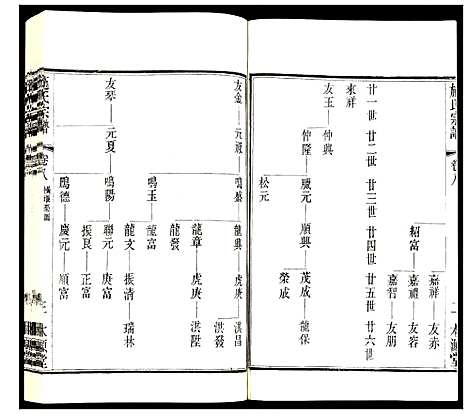 施氏宗譜 卷八
嘉祥——友赤
紹富——嘉禮——友容
嘉智——友朋
廿一世 廿二世 廿三世 廿四世 廿五世 廿六世
來祥
友玉——仲興
仲隆——晟元——順興——茂成——龍保
榮成
松元
友金——元殿——鳴盛——龍興——虎庚——洪昌
洪發
龍章——虎庚——洪陞
龍發
鳴玉——龍富
龍文——振清——瑞林
友琴——元夏——鳴陽——聯元——庚富
振良——正富
鳳德——慶元——順富
施氏宗譜 卷八